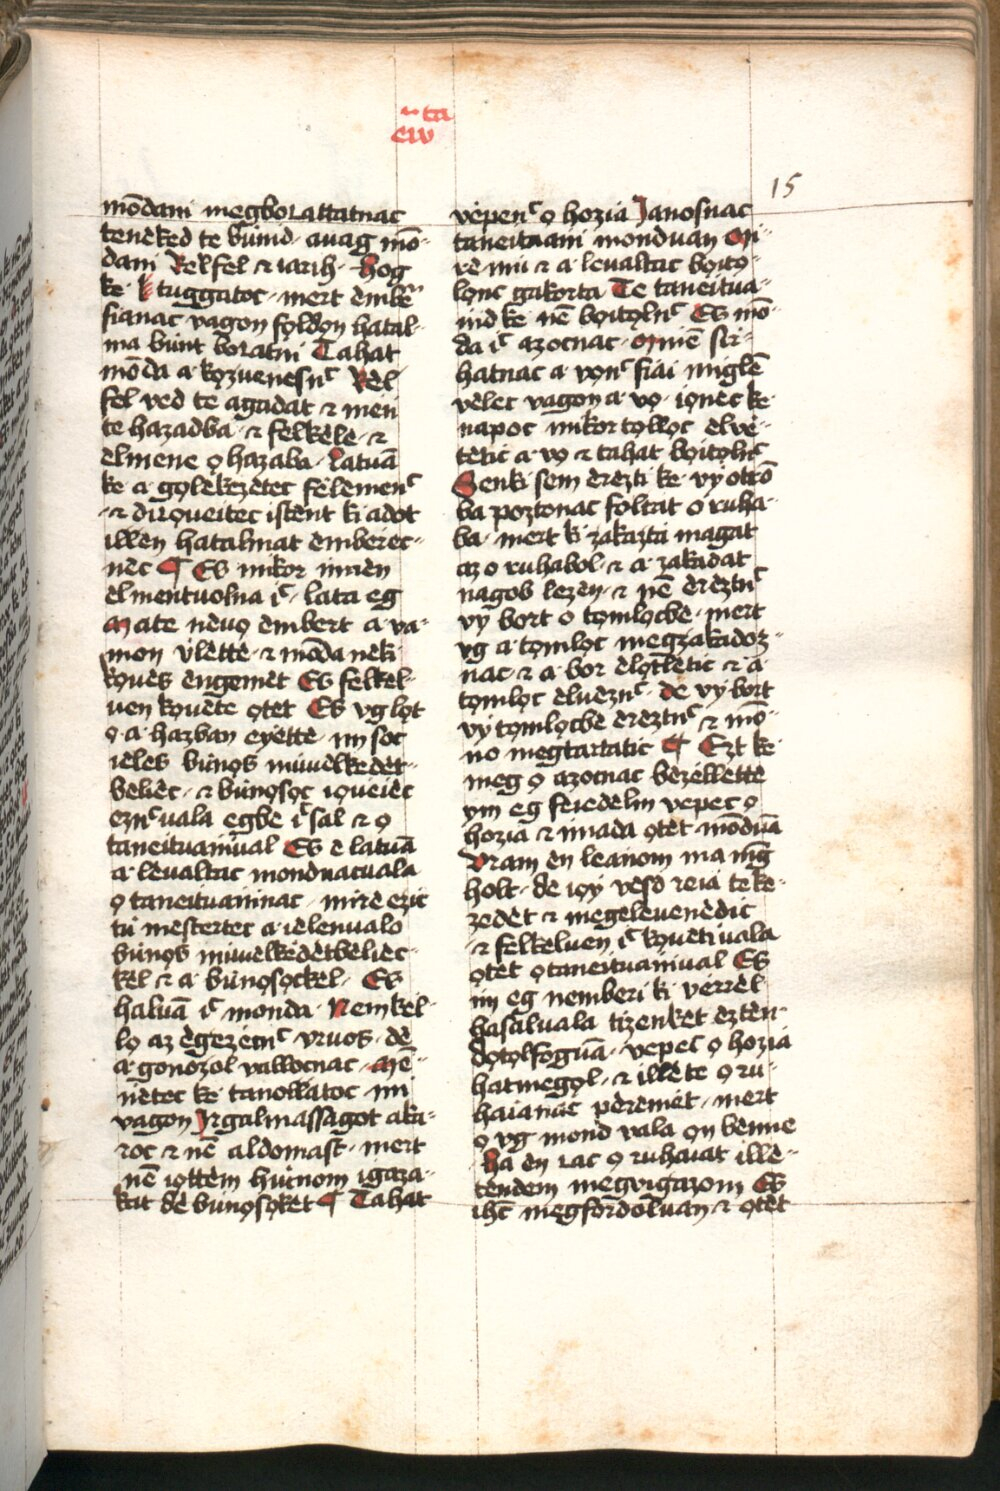 m̃ ta
ew
15
mōdani megboLattatnac
tenėked te bu̇nid· auag mō-
dani Kelfel ⁊ iarih· Hog
ke· tuggatoc· mert ėmbėr
fianac vagon fo̗ldo̗n hatal-
ma bu̇nt boLatni Tahat
mōda a· ko̗zuenesn̄c Kėl
fel ved te agadat ⁊ mėn
te hazadba· ⁊ felkėle· ⁊
elmene o̗ hazaba· Latuā
ke a· go̗lėkėzėtec fėlėmen̄c
⁊ du̇co̗veitec istėnt ki adot
illėn hatalmat ėmberec-
nėc ¶ Es mikor innėn
elmentuolna ic̄· lata eg
Mate nėuo̗ ėmbert a· va-
mon u̇lėtte· ⁊ mōda nėki·
Ko̗ues engėmet Es felkel-
uėn ko̗uete o̗tet Es vg lo̗t
o̗· a· hazban eyėtte· im soc
ieles bu̇no̗s mu̇uelkėdėt-
beliėc· ⁊ bu̇no̗so̗c io̗ueiėc
ezn̄c uala egbe ic̄sal ⁊ o̗
taneituaniual Es e latuā
a· leualtac monduacuala
o̗ taneituaninac· mire ezic
tu̇ mėstertec a· ielenualo
bu̇no̗s mu̇uelkėdėtbėliėc-
kėl ⁊ a· bu̇no̗so̗ckel· Es
haluā ic̄ monda· Nemkel-
lo̗ az ėgezėcn̄c vruos· dė
a· gonozol vallocnac· Mė-
nėtec ke· tanollatoc· mi
vagon Irgalmassagot aka-
roc ⁊ nē aldomast· mert
nē io̗ttem hiunom igaza-
kat dė bu̇no̗so̗ket ¶ Tahat
vėpen̄c o̗ hozia Janosnac
taneituani monduan Mi-
re mu̇ ⁊ a· leualtac bo̗ito̗-
lo̗nc gakorta Te taneitua-
nid ke· nē bo̗ito̗ln̄c Es mō-
da ic̄ azocnac· Minē sir-
hatnac a· vo̗n̄c fiai miglē
vėlec vagon a· vo̗· io̗nec ke·
napoc· mikor to̗llo̗c elvė-
tėtic a· vo̗ ⁊ tahat bo̗ito̗ln̄c
Senki sem ėrėzti ke· vy otrō
ba poztonac foltat o̗ ruha-
ba· mert ki zakazta magat
az o̗ ruhabol· ⁊ a· zakadat
nagob lezėn· ⁊ nē ėrėztn̄c
vy bort o̗ to̗mlo̗cbe· mert
vg a· to̗mlo̗c megzakadoz-
nac ⁊ a· bor elo̗tlėtic ⁊ a·
to̗mlo̗c eluėzn̄c· de vy bort
vy to̗mlo̗cbe ėrėztn̄c ⁊ mō-
no megtartatic ¶ Ezt ke·
meg o̗ azocnac bezėllėtte
ym eg feiedėlm vėpec o̗
hozia ⁊ imada o̗tet mōduā
Vram en leanom ma mg̃
holt· de io̗y vėsd reia te ke-
zedėt ⁊ megelėuenėdic
⁊ felkeluėn ic̄ ko̗ueti uala
o̗tet o̗ taneituaniual Es
im eg nėmberi ki vėrrėl
hasaluala tizėnkėt eztėn-
do̗to̗lfoguā· vėpec o̗ hozia
hatmego̗l· ⁊ illete o̗ ru-
haianac pėrėmėt· mert
o̗ vg mond vala o̗n bėnne
Ha en csac o̗ ruhaiat illė-
tendem megvigazom Es
ihc̄ megfordoluan ⁊ o̗tet